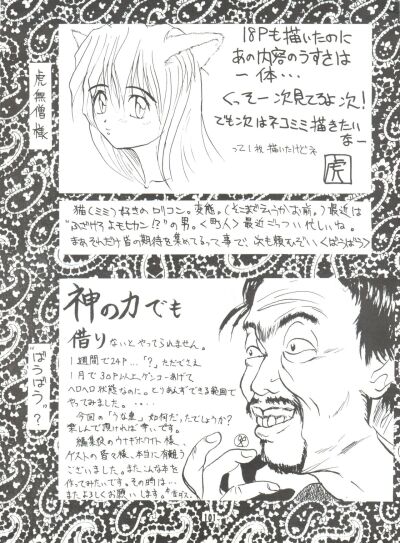 18Pも描いたのに
あの内容のうすさは
一体・・・
くっそー次見てろよ次！
でも次はネコミミ描きたい
なー
って1枚描いたけどネ
虎
虎無僧様
猫（ミミ）好きのロリコン。変態。（そこまでいうか（お前。）最近は
"ふざけろよもヒカン!?"の男。〈町人〉最近ごっつい忙しいね。
まあそれだけ皆の期待を集めてるって事で、次も頼むぞい〈ばうばう〉
"ばうばう"？
神の力でも
借りないとやってられません。
1週間で24P…「?」ただでさえ
1月で30P以上ゲンコーあげて
ヘロヘロ状態なのに。とりあえずできる範囲で
やってみました。・・・・
今回の「うな重」如何だったでしょうか？
楽しんで頂ければ幸いです。
編集役のウナギホワイト様、
ゲストの皆々様、本当に有難う
ございました。またこんな本を
作ってみたいです。その時は…
またよろしくお願いします。
101